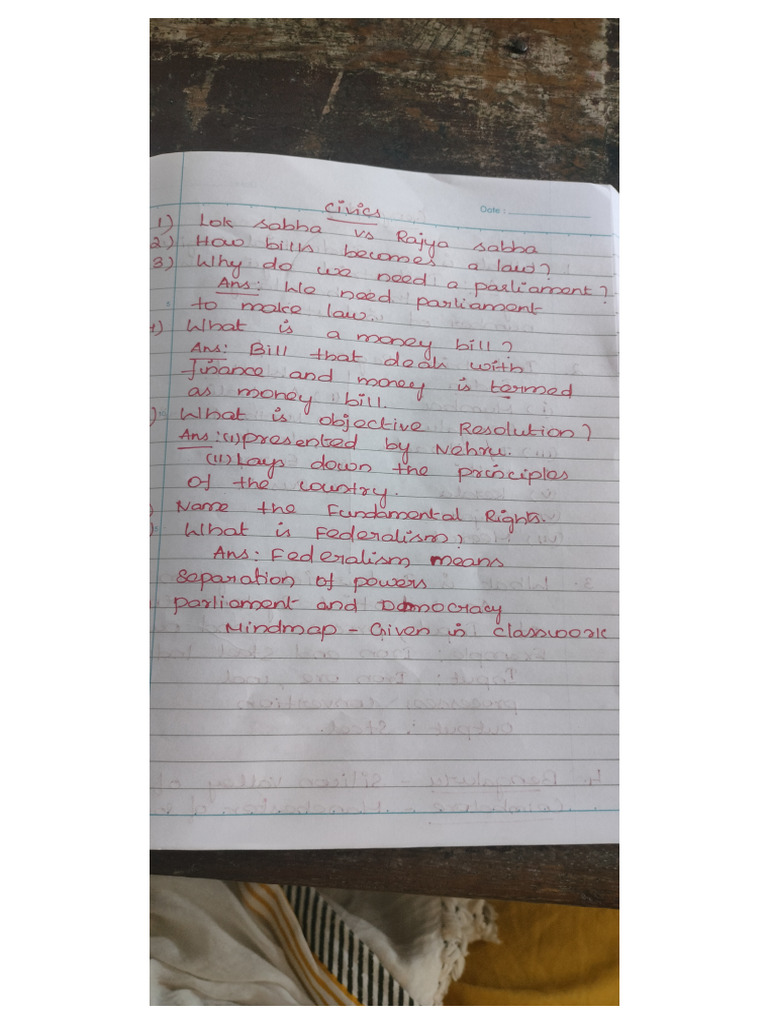 Civics
Date :
1) Lok sabha vs Rajya sabha
2) How bills becomes a law?
3) Why do we need a parliament?
Ans: We need parliament
to make law.
) What is a money bill?
Ans: Bill that deals with
finance and money is termed
as money bill.
) What is objective Resolution?
Ans: (i) presented by Nehru.
(ii) Lays down the principles
of the country.
) Name the Fundamental Rights.
) What is Federalism?
Ans: Federalism means
separation of powers
parliament and Democracy
Mindmap - Given in classwork